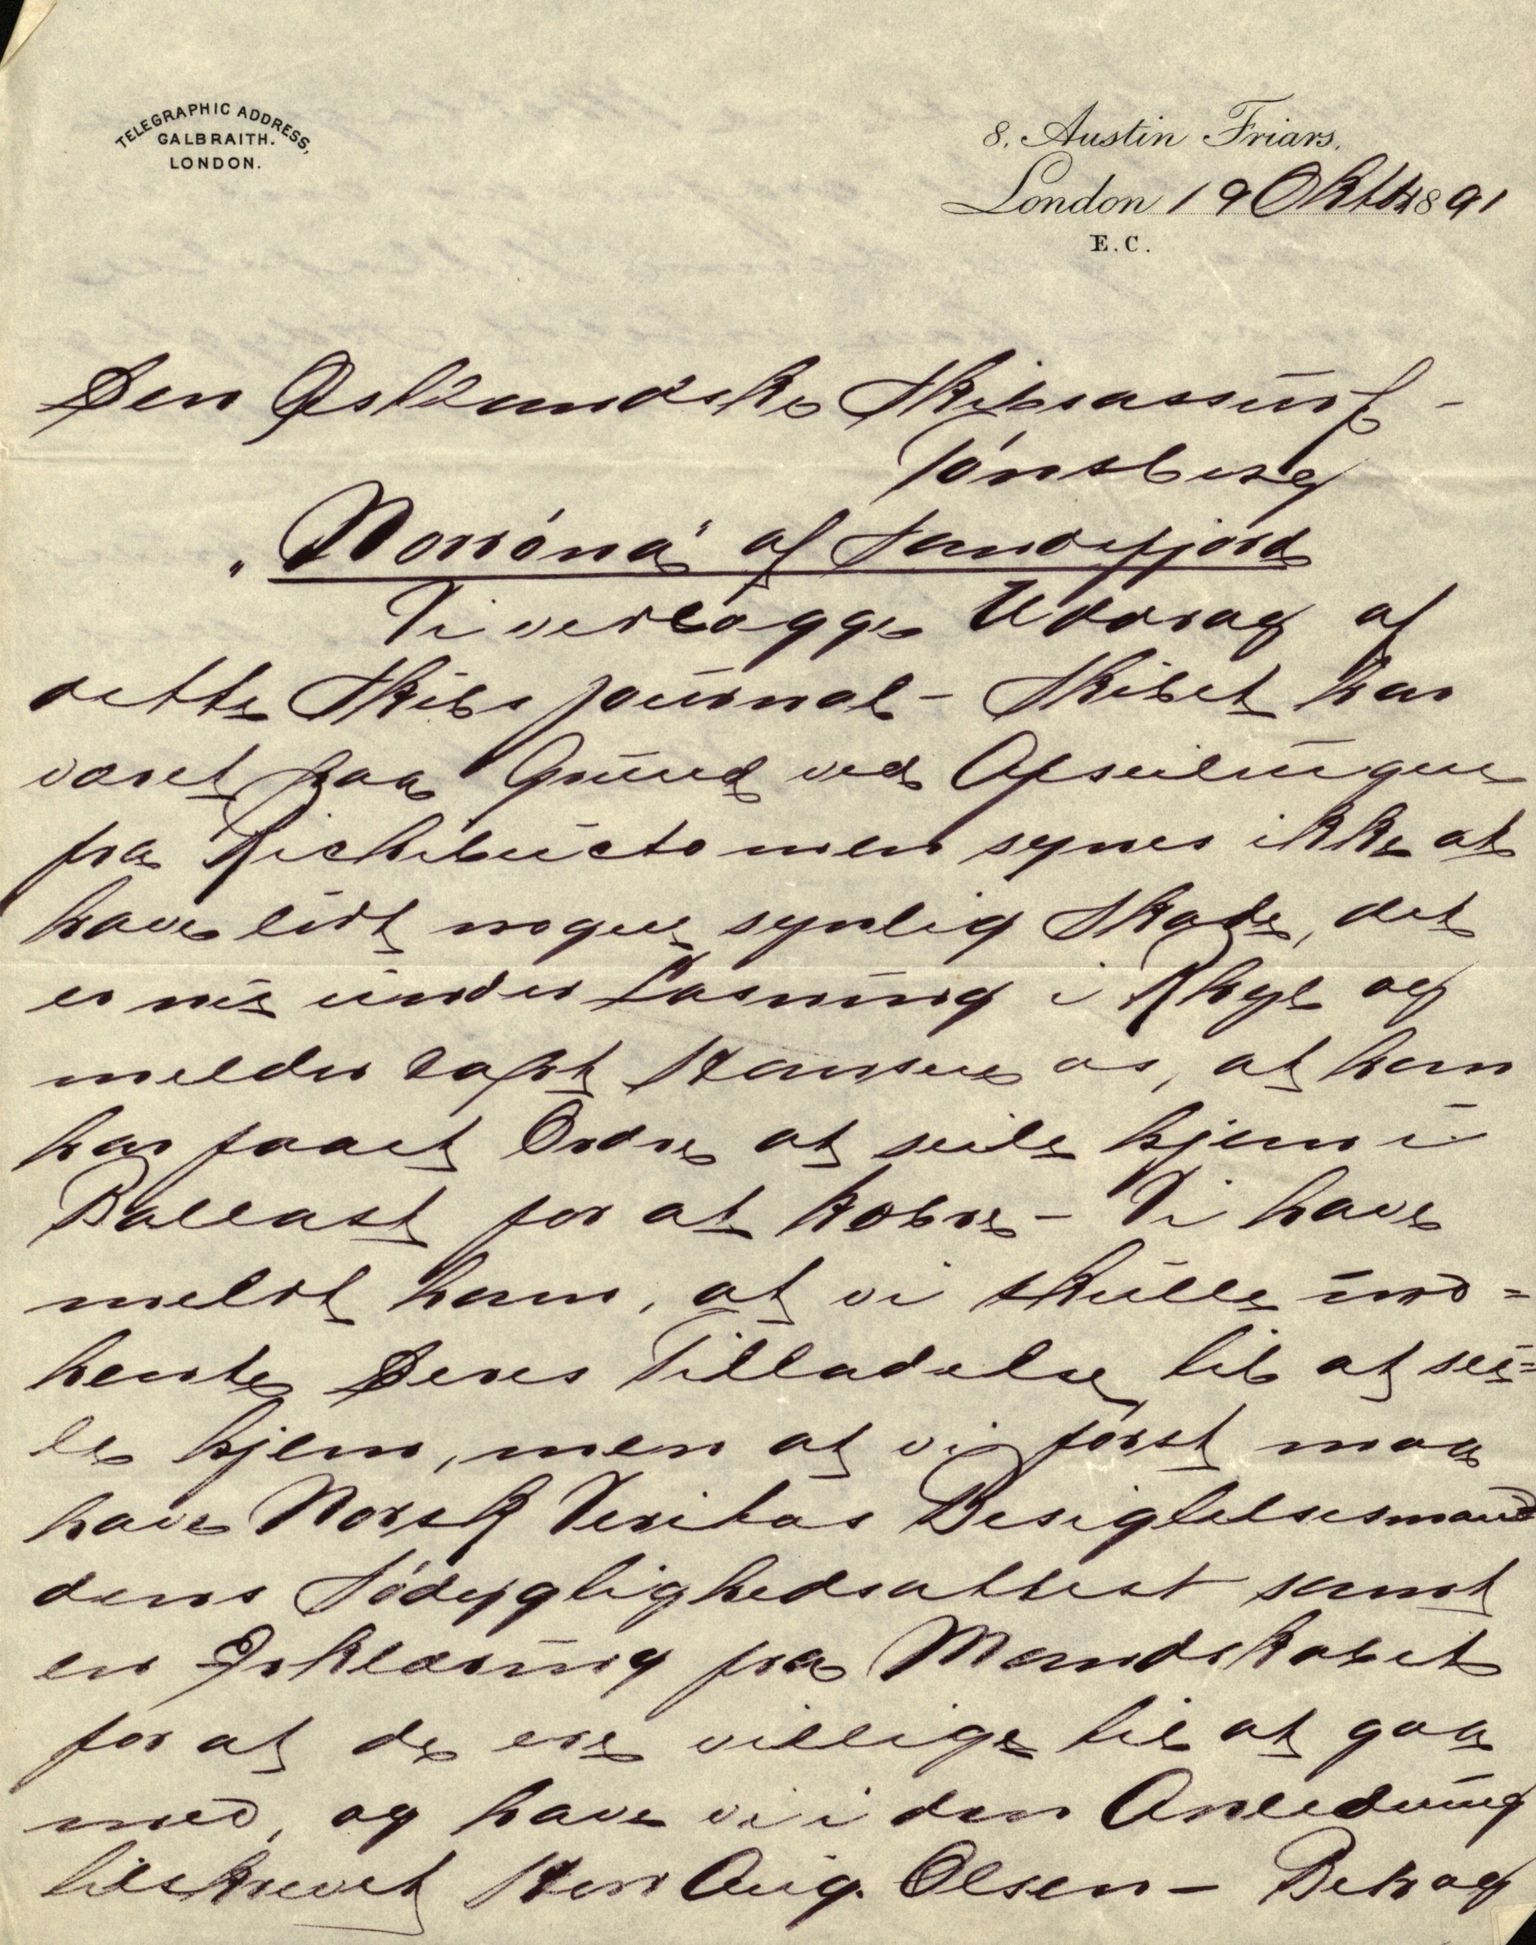 TELEGRAPHIC ADDRESS,
GALBRAITH.
LONDON.
8, Austin Friars,
London 19 Oktbr 1891
E.C.
Den Østlandske Skibsassurf-
Tønsberg
"Norrøna" af Sandefjord
Vi vedlægge Uddrag af
dette Skibs Journal - Skibet har
været paa Grund ved Afseilingen
fra Richibucto men synes ikke at
have lidt nogen synlig Skade, det
er nu under Losning i Rhyl og
melder Capt Hansen os, at han
har faaet Ordre at seile hjem i
Ballast for at kobre - Vi have
meldt ham, at vi skulle ind=
hente Deres Tilladelse til at sei=
le hjem, men at vi først maa
have Norsk Veritas Besigtelsesmand
dens Sødygtighedsattest samt
en Erklæring fra Mandskabet
for at de ere villige til at gaa
med, og have vi i den Anledning
tilskrevet Herr Aug. Olsen - Betrag